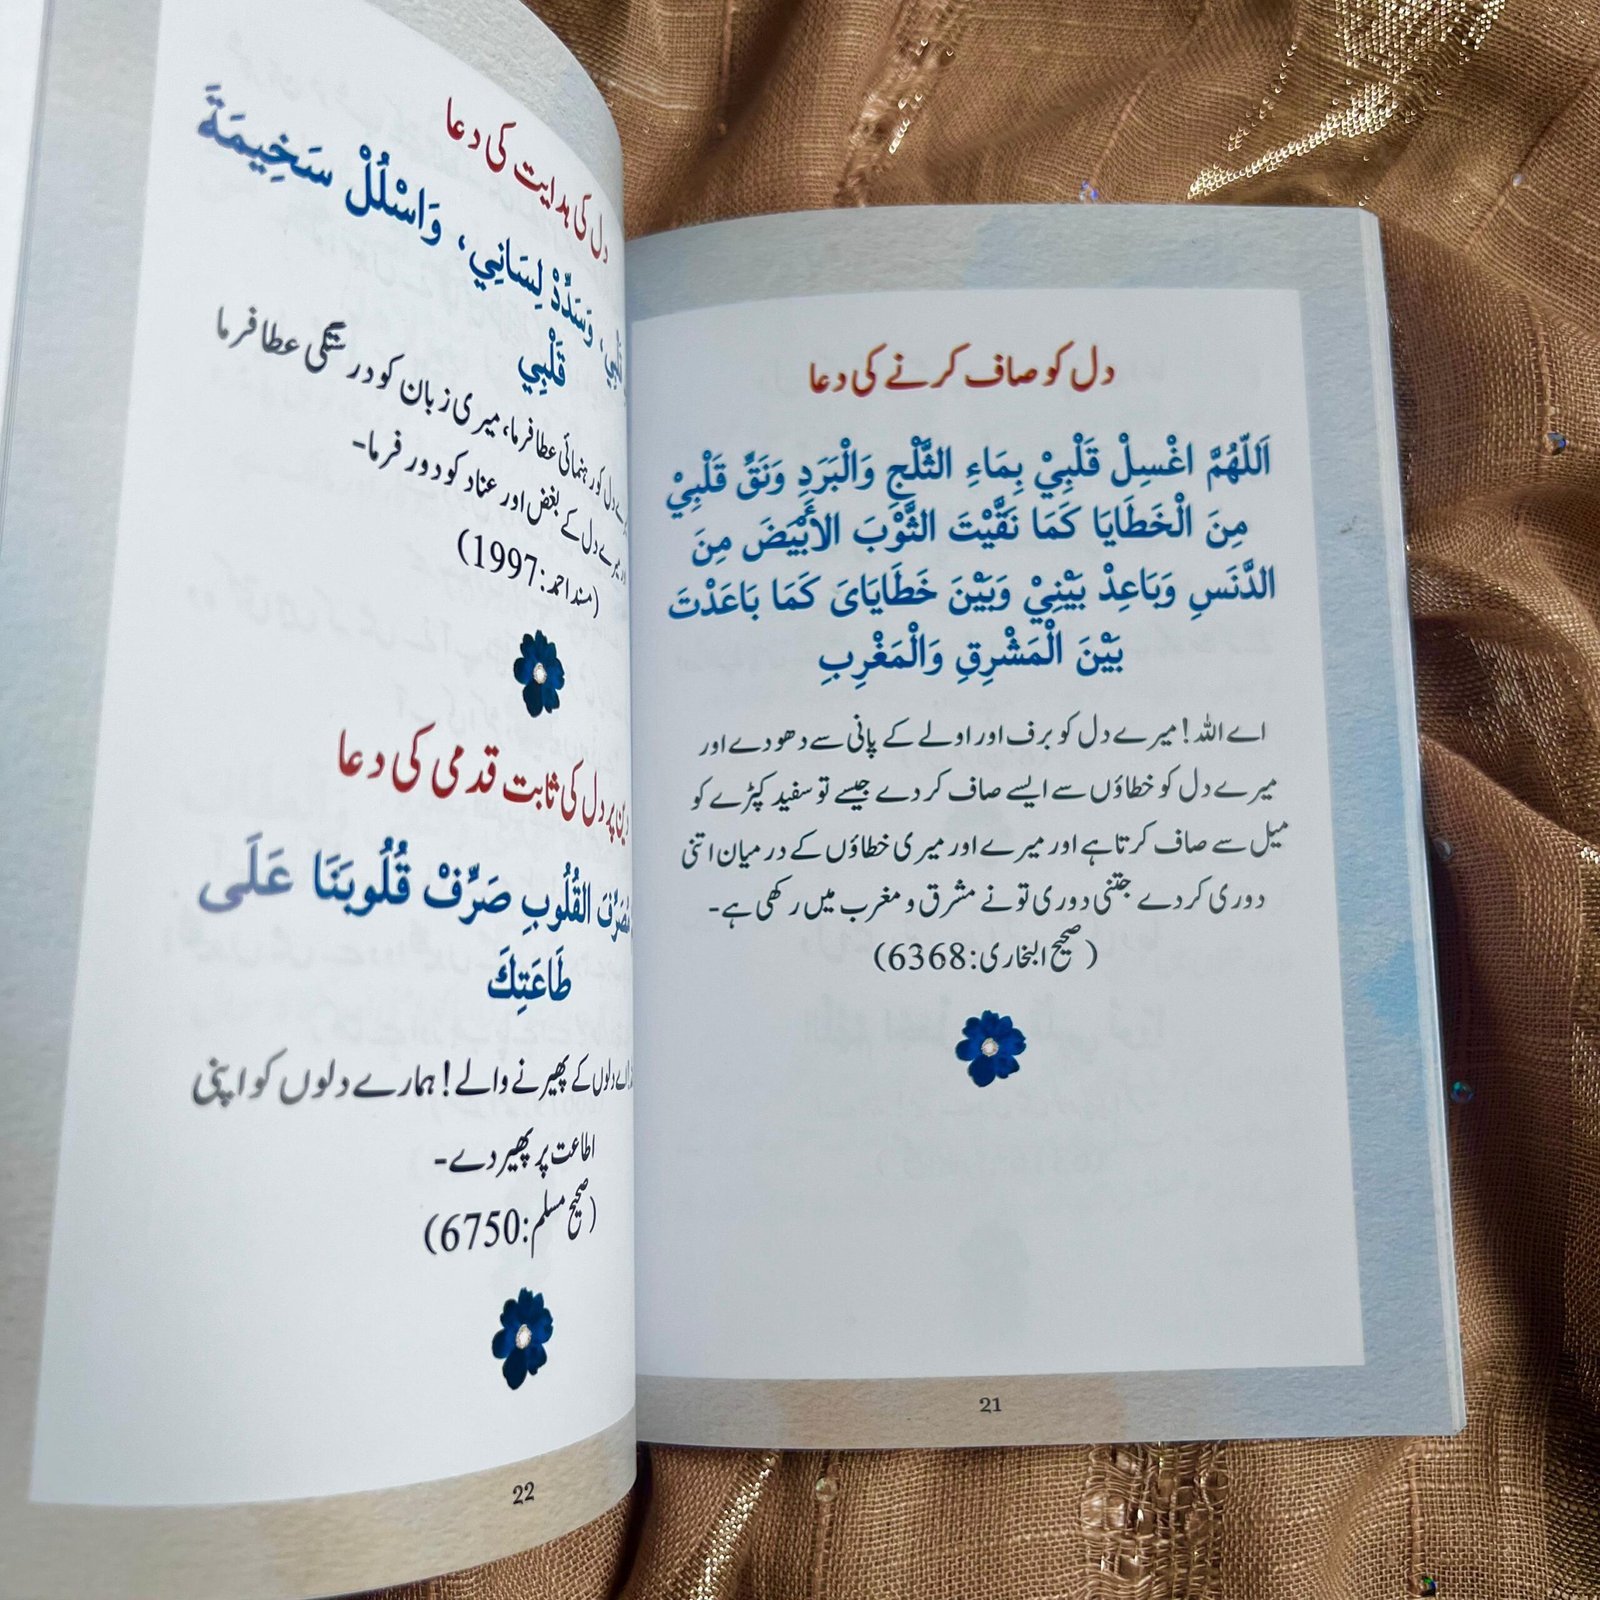 دل کو صاف کرنے کی دعا
اَللّٰهُمَّ اغْسِلْ قَلْبِيْ بِمَاءِ الثَّلْجِ وَالْبَرَدِ وَنَقِّ قَلْبِيْ
مِنَ الْخَطَايَا كَمَا نَقَّيْتَ الثَّوْبَ الأَبْيَضَ مِنَ
الدَّنَسِ وَبَاعِدْ بَيْنِيْ وَبَيْنَ خَطَايَاىَ كَمَا بَاعَدْتَ
بَيْنَ الْمَشْرِقِ وَالْمَغْرِبِ
اے اللہ! میرے دل کو برف اور اولے کے پانی سے دھو دے اور
میرے دل کو خطاؤں سے ایسے صاف کر دے جیسے تو سفید کپڑے کو
میل سے صاف کرتا ہے اور میرے اور میری خطاؤں کے درمیان اتنی
دوری کر دے جتنی دوری تو نے مشرق و مغرب میں رکھی ہے۔
(صحیح البخاری:6368)
21
دل کی ہدایت کی دعا
قَلْبِي، وَسَدِّدْ لِسَانِي، وَاسْلُلْ سَخِيمَةَ
قَلْبِي
دل کو رہنمائی عطا فرما، میری زبان کو درستگی عطا فرما
میرے دل کے بغض اور عناد کو دور فرما۔
(مسند احمد:1997)
دین پر دل کی ثابت قدمی کی دعا
مُصَرِّفَ الْقُلُوبِ صَرِّفْ قُلُوبَنَا عَلَى
طَاعَتِكَ
اے دلوں کے پھیرنے والے! ہمارے دلوں کو اپنی
اطاعت پر پھیر دے۔
(صحیح مسلم:6750)
22